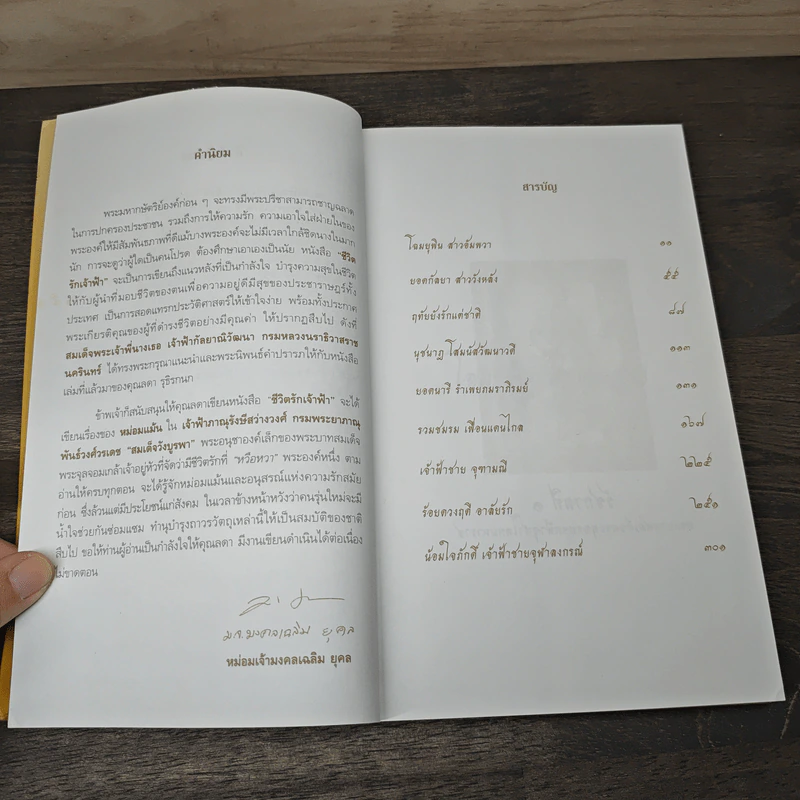 คำนิยม
พระมหากษัตริย์องค์ก่อน ๆ จะทรงมีพระปรีชาสามารถชาญฉลาด
ในการปกครองประชาชน รวมถึงการให้ความรัก ความเอาใจใส่ฝ่ายในของ
พระองค์ให้มีสัมพันธภาพที่ดีแม้บางพระองค์จะไม่มีเวลาใกล้ชิดนางในมาก
นัก การจะดูว่าผู้ใดเป็นคนโปรด ต้องศึกษาเอาเองเป็นนัย หนังสือ "ชีวิต
รักเจ้าฟ้า" จะเป็นการเขียนถึงแนวหลังที่เป็นกำลังใจ บำรุงความสุขในชีวิต
ให้กับผู้นำที่มอบชีวิตของตนเพื่อความอยู่ดีมีสุขของประชาราษฎร์ทั้ง
ประเทศ เป็นการสอดแทรกประวัติศาสตร์ให้เข้าใจง่าย พร้อมทั้งประกาศ
พระเกียรติคุณของผู้ที่ดำรงชีวิตอย่างมีคุณค่า ให้ปรากฏสืบไป ดังที่
สมเด็จพระเจ้าพี่นางเธอ เจ้าฟ้ากัลยาณิวัฒนา กรมหลวงนราธิวาสราช
นครินทร์ ได้ทรงพระกรุณาแนะนำและพระนิพนธ์คำปรารภให้กับหนังสือ
เล่มที่แล้วมาของคุณลดา รุธิรกนก
ข้าพเจ้าก็สนับสนุนให้คุณลดาเขียนหนังสือ "ชีวิตรักเจ้าฟ้า" จะได้
เขียนเรื่องของ หม่อมแม้น ใน เจ้าฟ้าภาณุรังษีสว่างวงศ์ กรมพระยาภาณุ
พันธ์วงศ์วรเดช "สมเด็จวังบูรพา" พระอนุชาองค์เล็กของพระบาทสมเด็จ
พระจุลจอมเกล้าเจ้าอยู่หัวที่จัดว่ามีชีวิตรักที่ "หรือหวา" พระองค์หนึ่ง ตาม
อ่านให้ครบทุกตอน จะได้รู้จักหม่อมแม้นและอนุสรณ์แห่งความรักสมัย
ก่อน ซึ่งล้วนแต่มีประโยชน์แก่สังคม ในเวลาข้างหน้าหวังว่าคนรุ่นใหม่จะมี
น้ำใจช่วยกันซ่อมแซม ทำนุบำรุงถาวรวัตถุเหล่านี้ให้เป็นสมบัติของชาติ
สืบไป ขอให้ท่านผู้อ่านเป็นกำลังใจให้คุณลดา มีงานเขียนดำเนินได้ต่อเนื่อง
ไม่ขาดตอน
ม.จ.มงคลเฉลิม ยุคล
หม่อมเจ้ามงคลเฉลิม ยุคล
สารบัญ
โฉมยุพิน สาวอัมพวา ๑๑
ยอดกัลยา สาววังหลัง ๕๕
ฤทัยยังรักแต่ชาติ ๘๗
นุชนาฏ โสมนัสวัฒนาวดี ๑๑๓
ยอดนารี รำเพยภมราภิรมย์ ๑๓๑
รวมชมรม เพื่อนแดนไกล ๑๖๗
เจ้าฟ้าชาย จุฑามณี ๒๒๕
ร้อยดวงฤดี อาลัยรัก ๒๕๑
น้อมใจภักดี เจ้าฟ้าชายจุฬาลงกรณ์ ๓๐๑